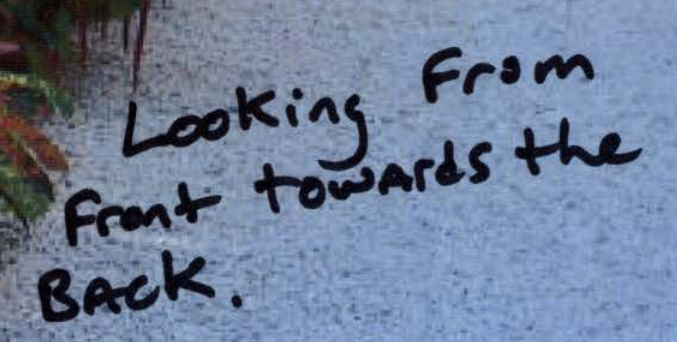 Looking From
Front towards the
BACK.